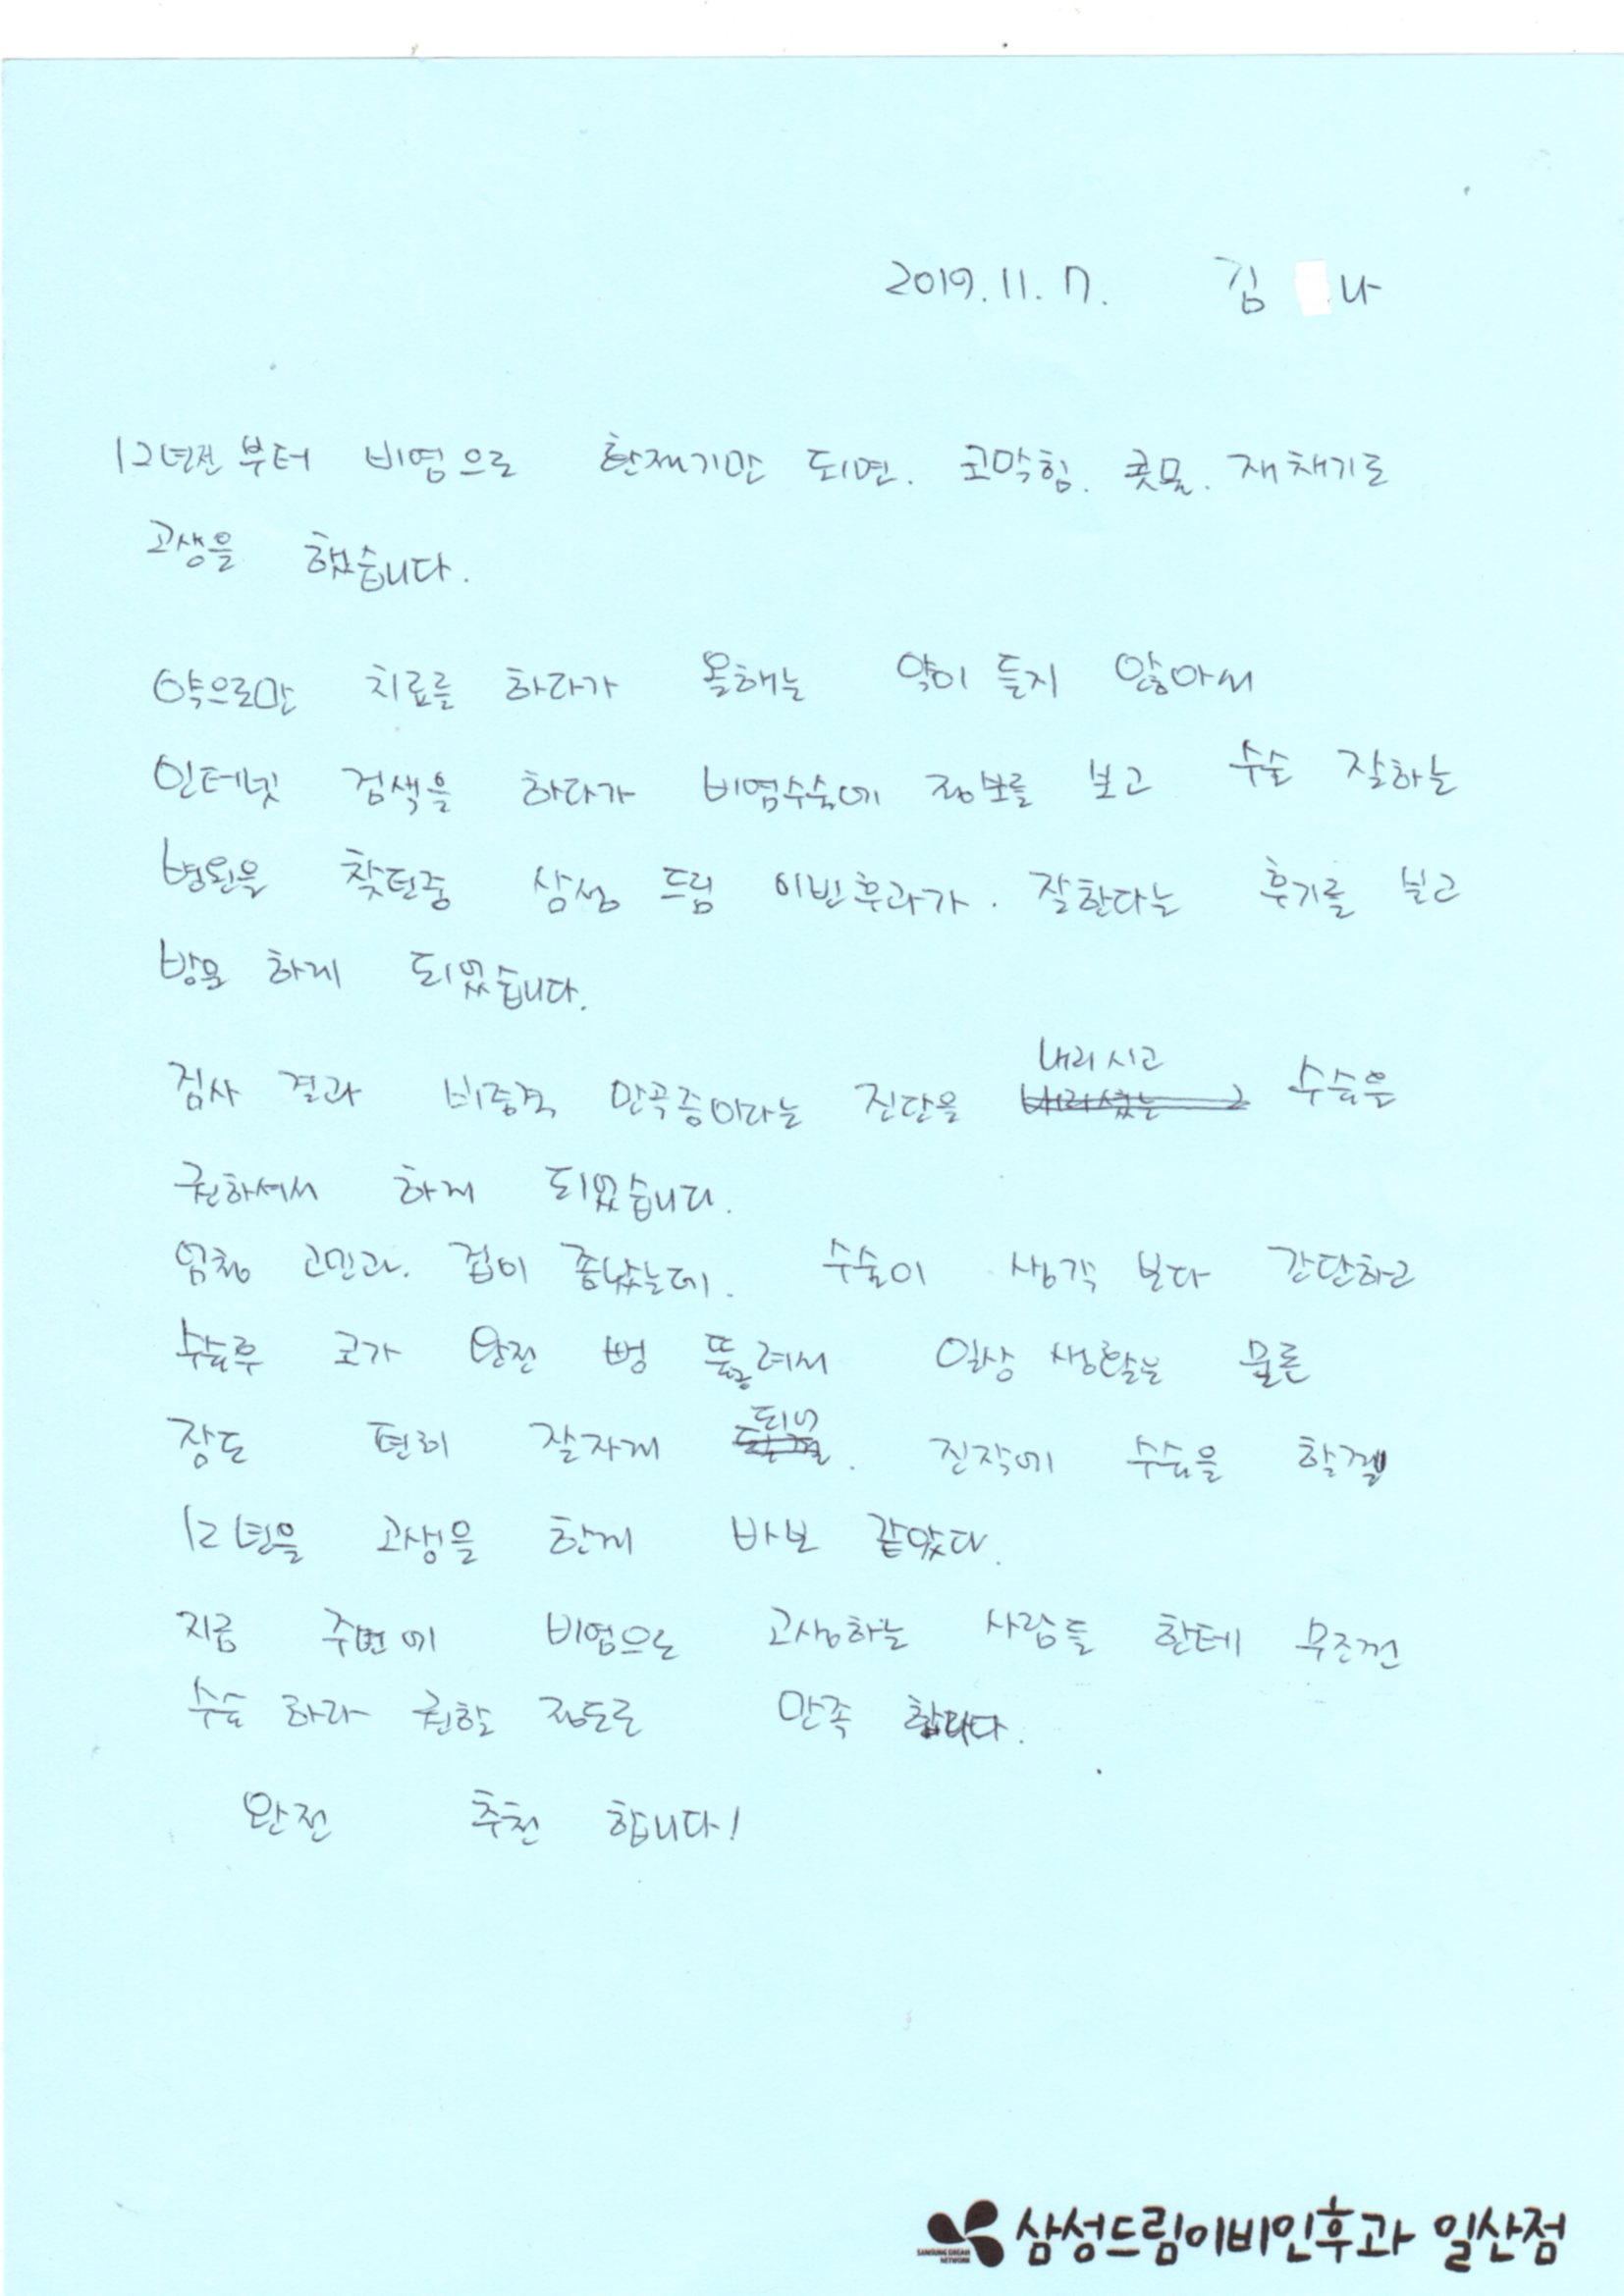 2019.11.7. 김 나
12년전 부터 비염으로 환절기만 되면. 코막힘. 콧물. 재채기로
고생을 했습니다.
약으로만 치료를 하다가 올해는 약이 듣지 않아서
인터넷 검색을 하다가 비염수술에 정보를 보고 수술 잘하는
병원을 찾던중 삼성 드림 이빈후과가. 잘한다는 후기를 보고
방문 하게 되었습니다.
검사 결과 비중격 만곡증이라는 진단을 내리시고 수술을
권하셔서 하게 되었습니다.
엄청 고민과. 겁이 났는데. 수술이 생각 보다 간단하고
수술후 코가 완전 뻥 뚫려서 일상 생활은 물론
잠도 편히 잘자게 되어. 진작에 수술을 할껄
12년을 고생을 한게 바보 같았다.
지금 주변에 비염으로 고생하는 사람들 한테 무조건
수술 하라 권할 정도로 만족 합니다.
완전 추천 합니다!
삼성드림이비인후과 일산점
SAMSUNG DREAM
NETWORK